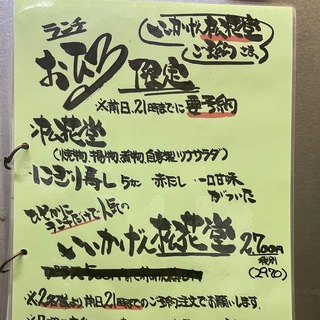 ランチ
いいかげん松花堂
ご予約でさえ
おひる限定
※前日、21時までに要予約
松花堂
(焼物、揚物、煮物、自家製ツナサラダ)
にぎり寿し 5カン 赤だし 一口甘味
がついた
ひそかに
ランチだけで人気の
いいかげん松花堂 2,700円
税別
(2970)
※2名様より前日21時までのご予約注文でお願いします